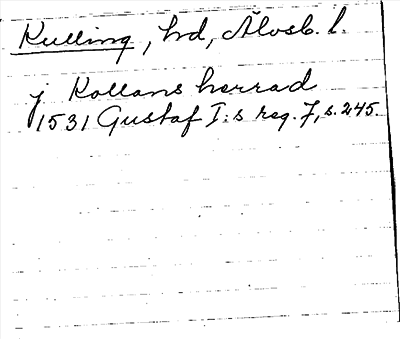 Kulling, hd, Älvsb. l.
j Kollans herrad
1531 Gustaf I:s reg. 7, s. 245.